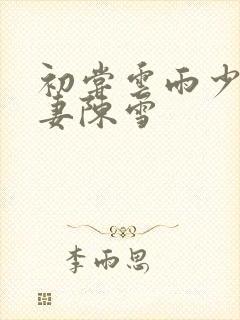 初尝雲雨少
妻陳雪
李雨思